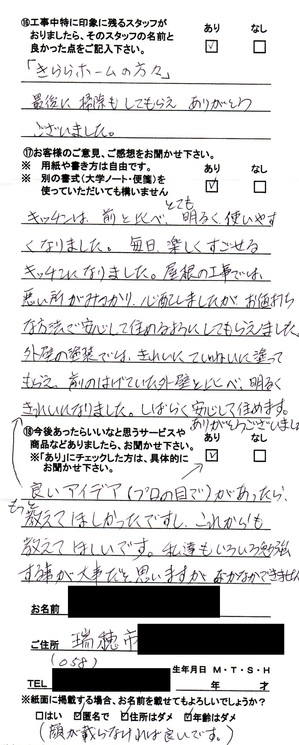 ⑯工事中特に印象に残るスタッフが
おりましたら、そのスタッフの名前と
良かった点をご記入下さい。
あり
なし
「きららホームの方々」
最後に掃除もしてもらえ ありがとう
ございました。
⑰お客様のご意見、ご感想をお聞かせ下さい。
※ 用紙や書き方は自由です。
※ 別の書式(大学ノート・便箋)を
使っていただいても構いません
あり
なし
とても
キッチンは、前と比べ、明るく、使いやす
くなりました。毎日、楽しくすごせる
キッチンになりました。屋根の工事では、
悪い所がみつかり、心配しましたが お値打ち
な方法で安心して住めるようにしてもらえました。
外壁の塗装では、きれいに ていねいに塗って
もらえ、前のはげていた外壁と比べ、明るく
きれいになりました。しばらく安心して住めます。
ありがとうございました
⑱今後あったらいいなと思うサービスや
商品などありましたら、お聞かせ下さい。
※「あり」にチェックした方は、具体的に
お聞かせ下さい。
あり
なし
良いアイデア(プロの目で)があったら、
もっと
教えてほしかったですし、これからも
教えてほしいです。私達もいろいろ勉強
する事が大事だと思いますが、なかなかできません
お名前
ご住所 瑞穂市
(058)
TEL
生年月日 M・T・S・H
年 才
※紙面に掲載する場合、お名前を載せてもよろしいでしょうか?
□はい ☑匿名で ☑住所はダメ ☑年齢はダメ
(顔が載らなければ良いです。)